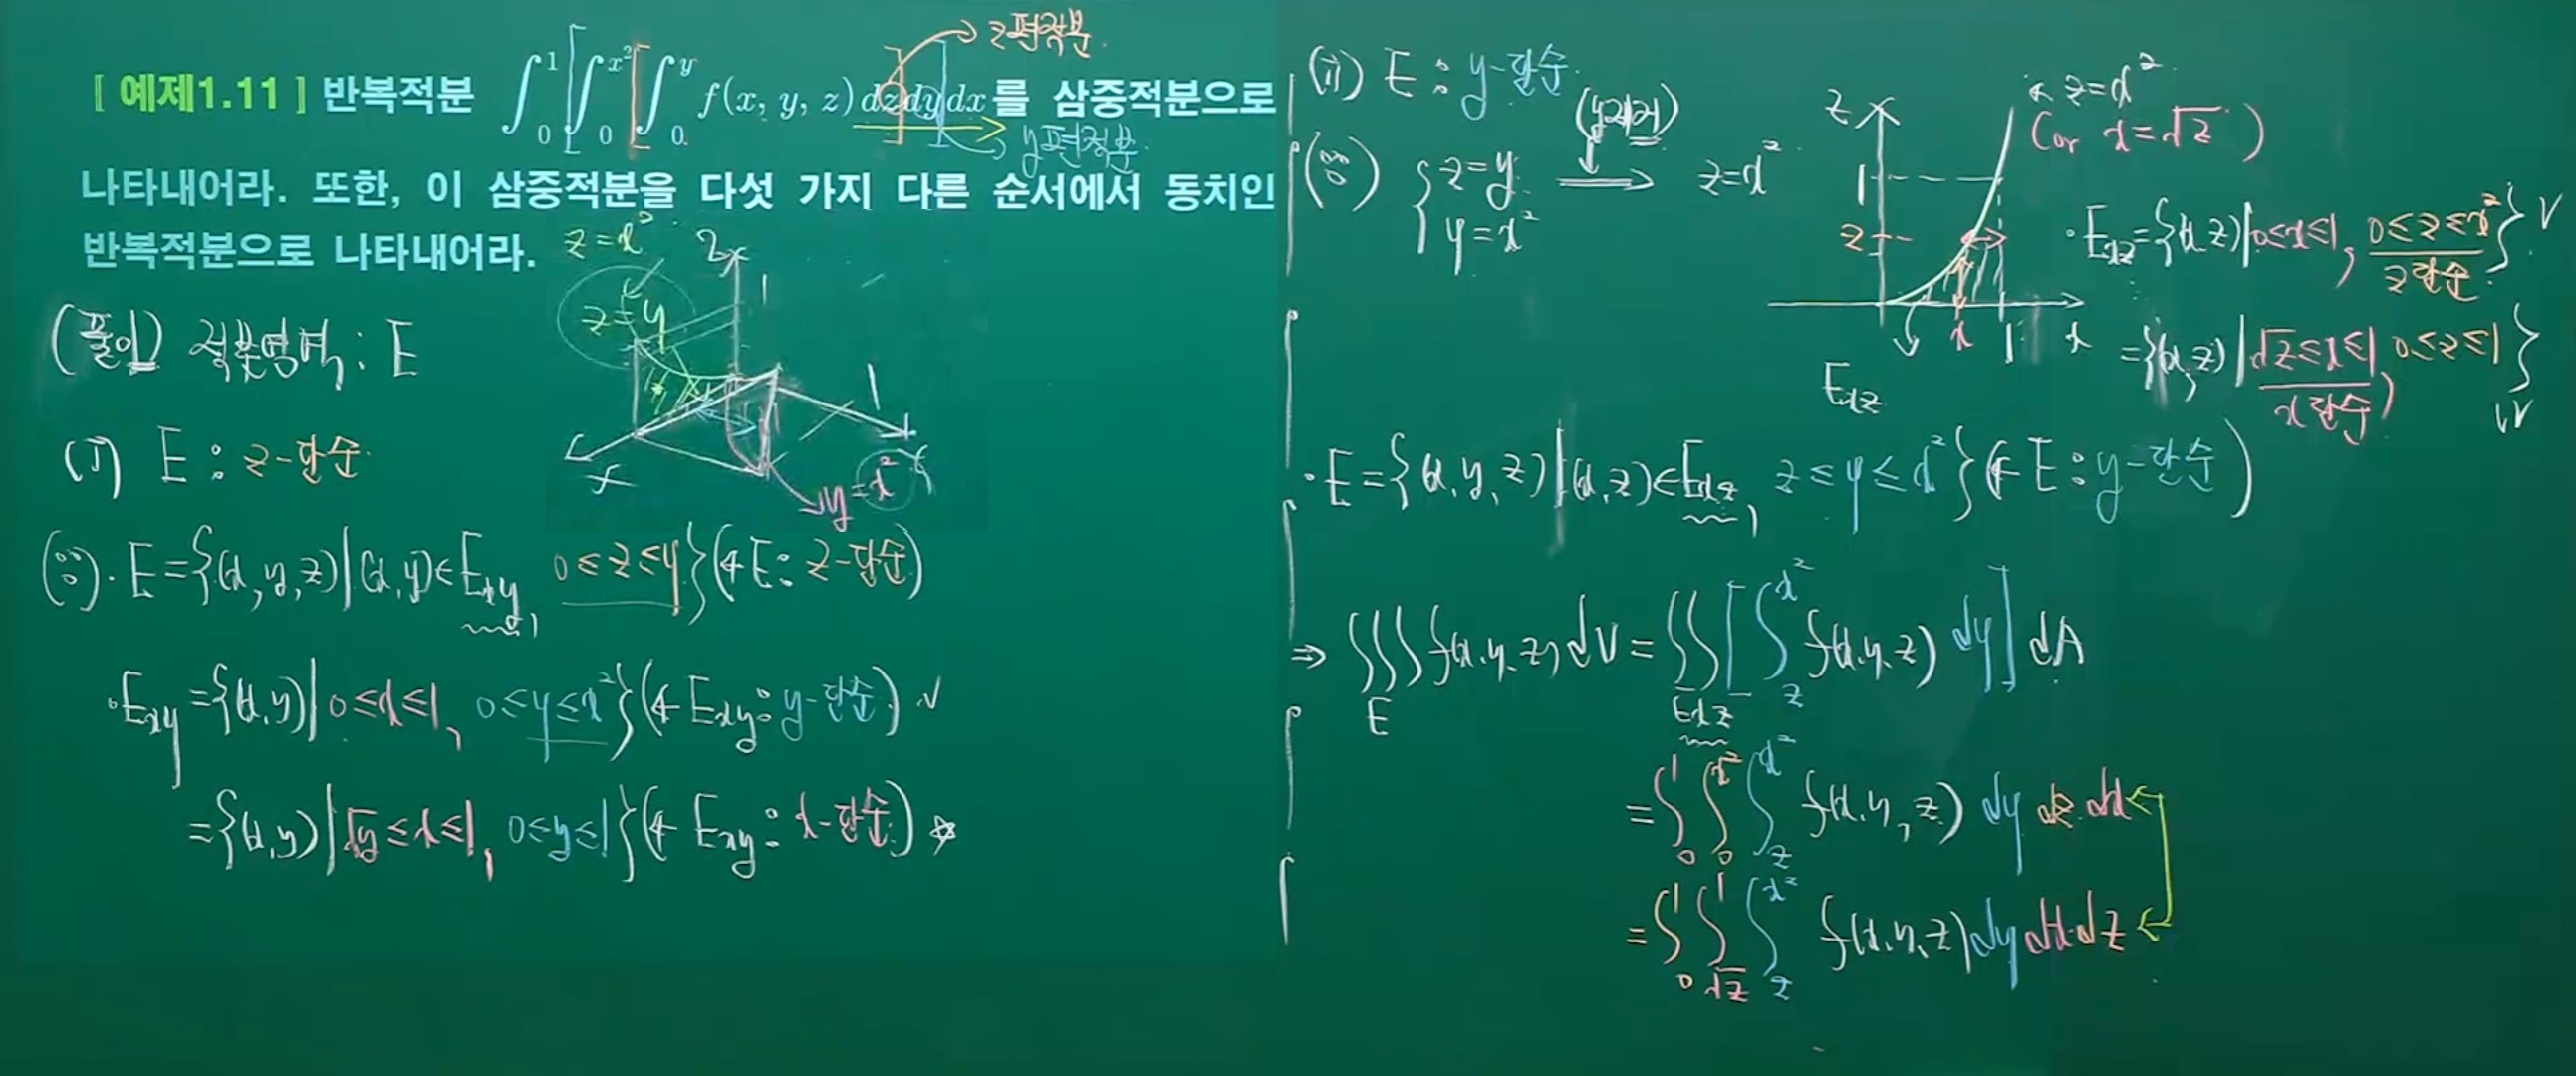 [ 예제1.11 ] 반복적분 ∫₀¹[∫₀^{x²}[∫₀^y f(x, y, z) dz]dy]dx를 삼중적분으로
z편적분
y편적분
나타내어라. 또한, 이 삼중적분을 다섯 가지 다른 순서에서 동치인
반복적분으로 나타내어라.
z=x²
z
1
z=y
(풀이) 적분영역: E
1
x
y
y=x²
(i) E : z-단순
(∵)· E={(x,y,z)|(x,y)∈E_{xy}, 0≤z≤y}(← E: z-단순)
·E_{xy}={(x,y)|0≤x≤1, 0≤y≤x²}(← E_{xy}: y-단순) ✓
={(x,y)|√y≤x≤1, 0≤y≤1}(← E_{xy}: x-단순) ☆
(ii) E : y-단순
(∵) { z=y
y=x²
(y소거)
⟹ z=x²
z
← z=x²
(or x=√z)
1
z
x
1
x
E_{xz}
·E_{xz}={(x,z)|0≤x≤1, 0≤z≤x²} ✓
z단순
={(x,z)|√z≤x≤1, 0≤z≤1}
x단순
·E={(x,y,z)|(x,z)∈E_{xz}, z≤y≤x²}(← E: y-단순)
⇒ ∭_E f(x,y,z)dV = ∬_{E_{xz}}[∫_z^{x²} f(x,y,z) dy] dA
=∫₀¹∫₀^{x²}∫_z^{x²} f(x,y,z) dy dz dx
=∫₀¹∫_{√z}^1∫_z^{x²} f(x,y,z)dy dx dz